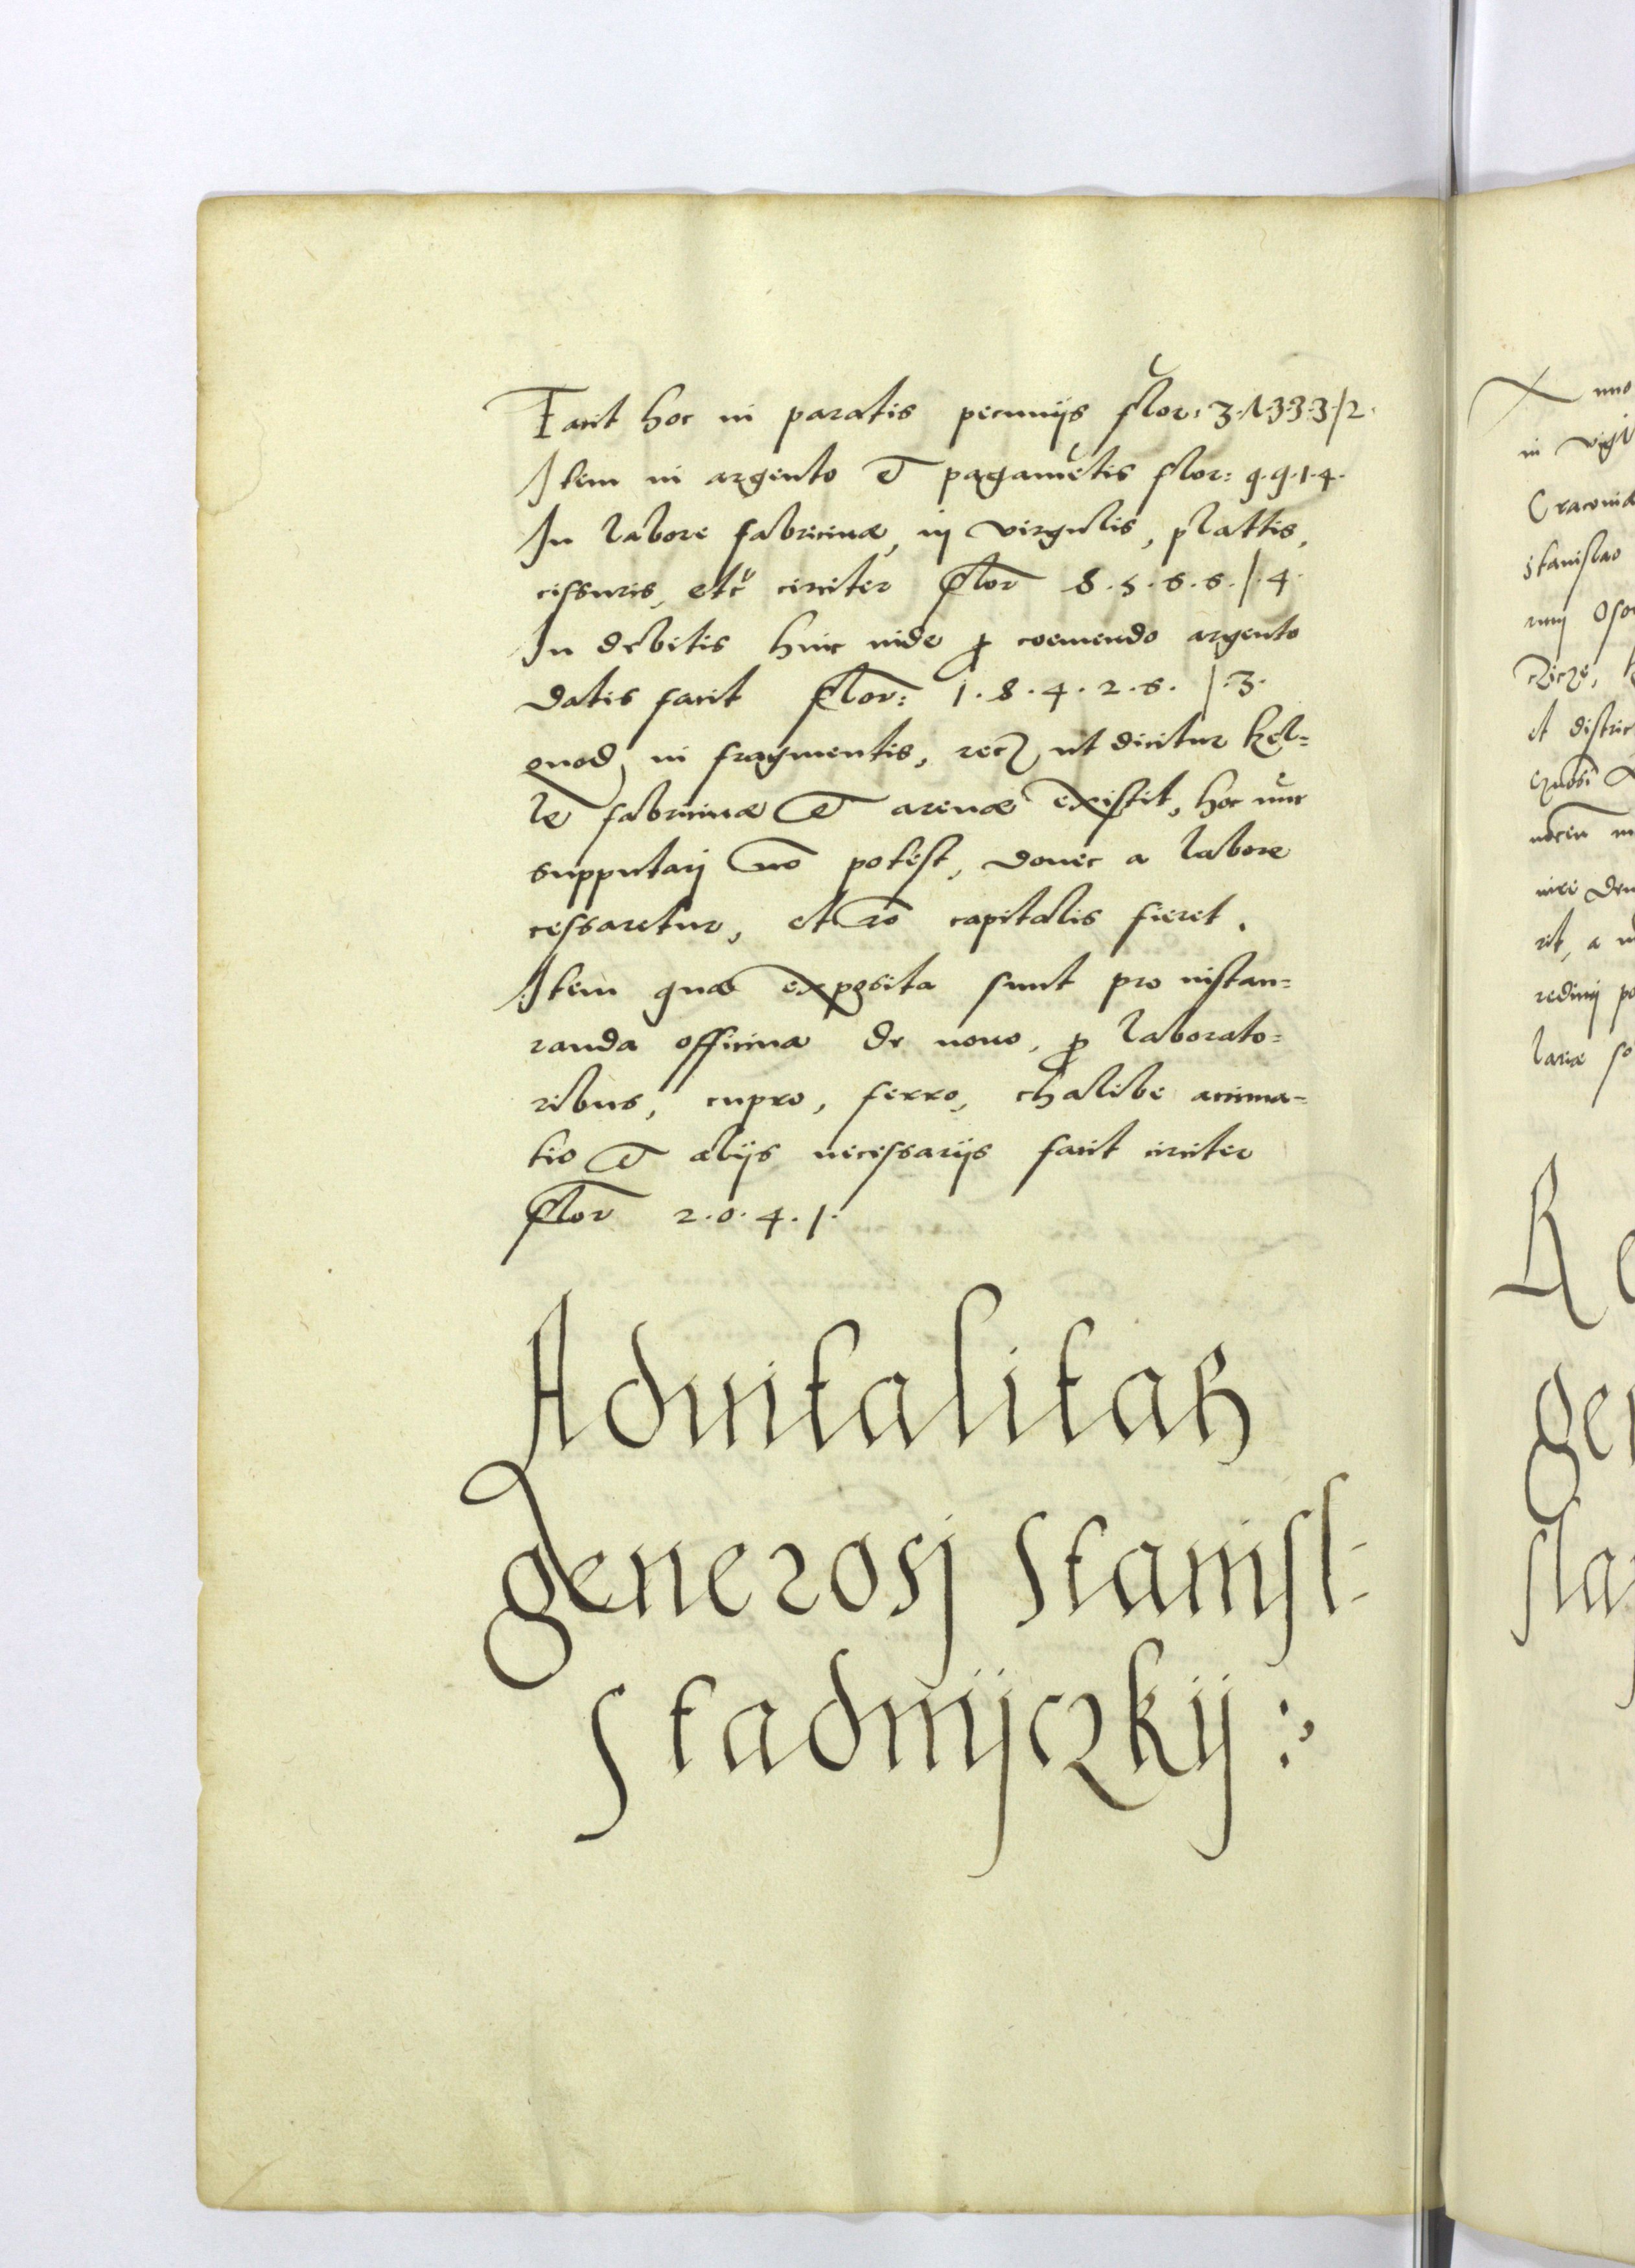 Facit hoc in paratis pecunijs flor: 3.1.3.3.3./2.
Item in argento et pagamētis flor: 9.9.1.4.
In labore fabricinæ, in virgulis, plattis,
cissuris, etc̃ circiter flor 8.5.6.6./.4.
In debitis hinc inde ꝑ coemendo argento
datis facit flor: 1.8.4.2.6./.3.
quod in fragmentis, ut dicitur kel=
le fabricinæ et arenæ existit, hoc nūc
supputarj nō potest, donec a labore
cessaretur, et rō capitalis fieret.
Item quæ exposita sunt pro instau=
randa officina de nouo, ꝑ laborato=
ribus, cupro, ferro, chalibe
et alijs necessarijs facit circiter
flor 2.0.4.1.
Aduitalitas
generosj Stanisl:
Stadnijczkij:
Anno
in
Cracouiæ
Stanislao